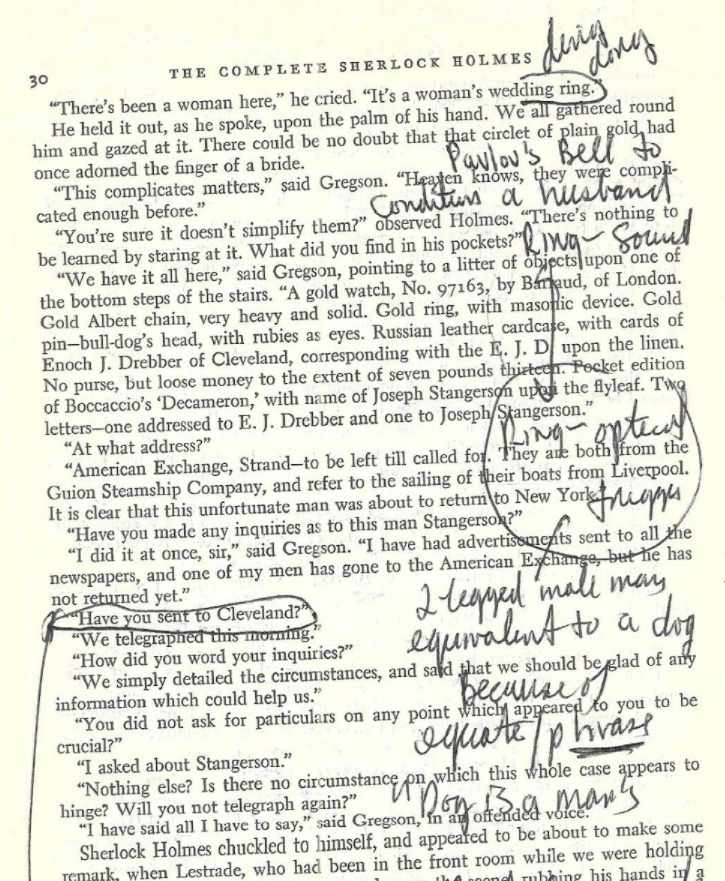 ding
dong
30
THE COMPLETE SHERLOCK HOLMES
"There's been a woman here," he cried. "It's a woman's wedding ring."
He held it out, as he spoke, upon the palm of his hand. We all gathered round
him and gazed at it. There could be no doubt that that circlet of plain gold had
once adorned the finger of a bride.
Pavlov's Bell to
"This complicates matters," said Gregson. "Heaven knows, they were compli-
cated enough before."
Conditions a husband
"You're sure it doesn't simplify them?" observed Holmes. "There's nothing to
be learned by staring at it. What did you find in his pockets?"
Ring - Sound
"We have it all here," said Gregson, pointing to a litter of objects upon one of
the bottom steps of the stairs. "A gold watch, No. 97163, by Barraud, of London.
Gold Albert chain, very heavy and solid. Gold ring, with masonic device. Gold
pin—bull-dog's head, with rubies as eyes. Russian leather cardcase, with cards of
Enoch J. Drebber of Cleveland, corresponding with the E. J. D. upon the linen.
No purse, but loose money to the extent of seven pounds thirteen. Pocket edition
of Boccaccio's 'Decameron,' with name of Joseph Stangerson upon the flyleaf. Two
letters—one addressed to E. J. Drebber and one to Joseph Stangerson."
"At what address?"
Ring - optical
"American Exchange, Strand—to be left till called for. They are both from the
Guion Steamship Company, and refer to the sailing of their boats from Liverpool.
It is clear that this unfortunate man was about to return to New York."
"Have you made any inquiries as to this man Stangerson?"
"I did it at once, sir," said Gregson. "I have had advertisements sent to all the
newspapers, and one of my men has gone to the American Exchange, but he has
not returned yet."
2 legged male man
"Have you sent to Cleveland?"
"We telegraphed this morning."
equivalent to a dog
"How did you word your inquiries?"
"We simply detailed the circumstances, and said that we should be glad of any
information which could help us."
because of
"You did not ask for particulars on any point which appeared to you to be
crucial?"
equate/phrase
"I asked about Stangerson."
"Nothing else? Is there no circumstance on which this whole case appears to
hinge? Will you not telegraph again?"
"Dog is a man's
"I have said all I have to say," said Gregson, in an offended voice.
Sherlock Holmes chuckled to himself, and appeared to be about to make some
remark, when Lestrade, who had been in the front room while we were holding
rubbing his hands in a